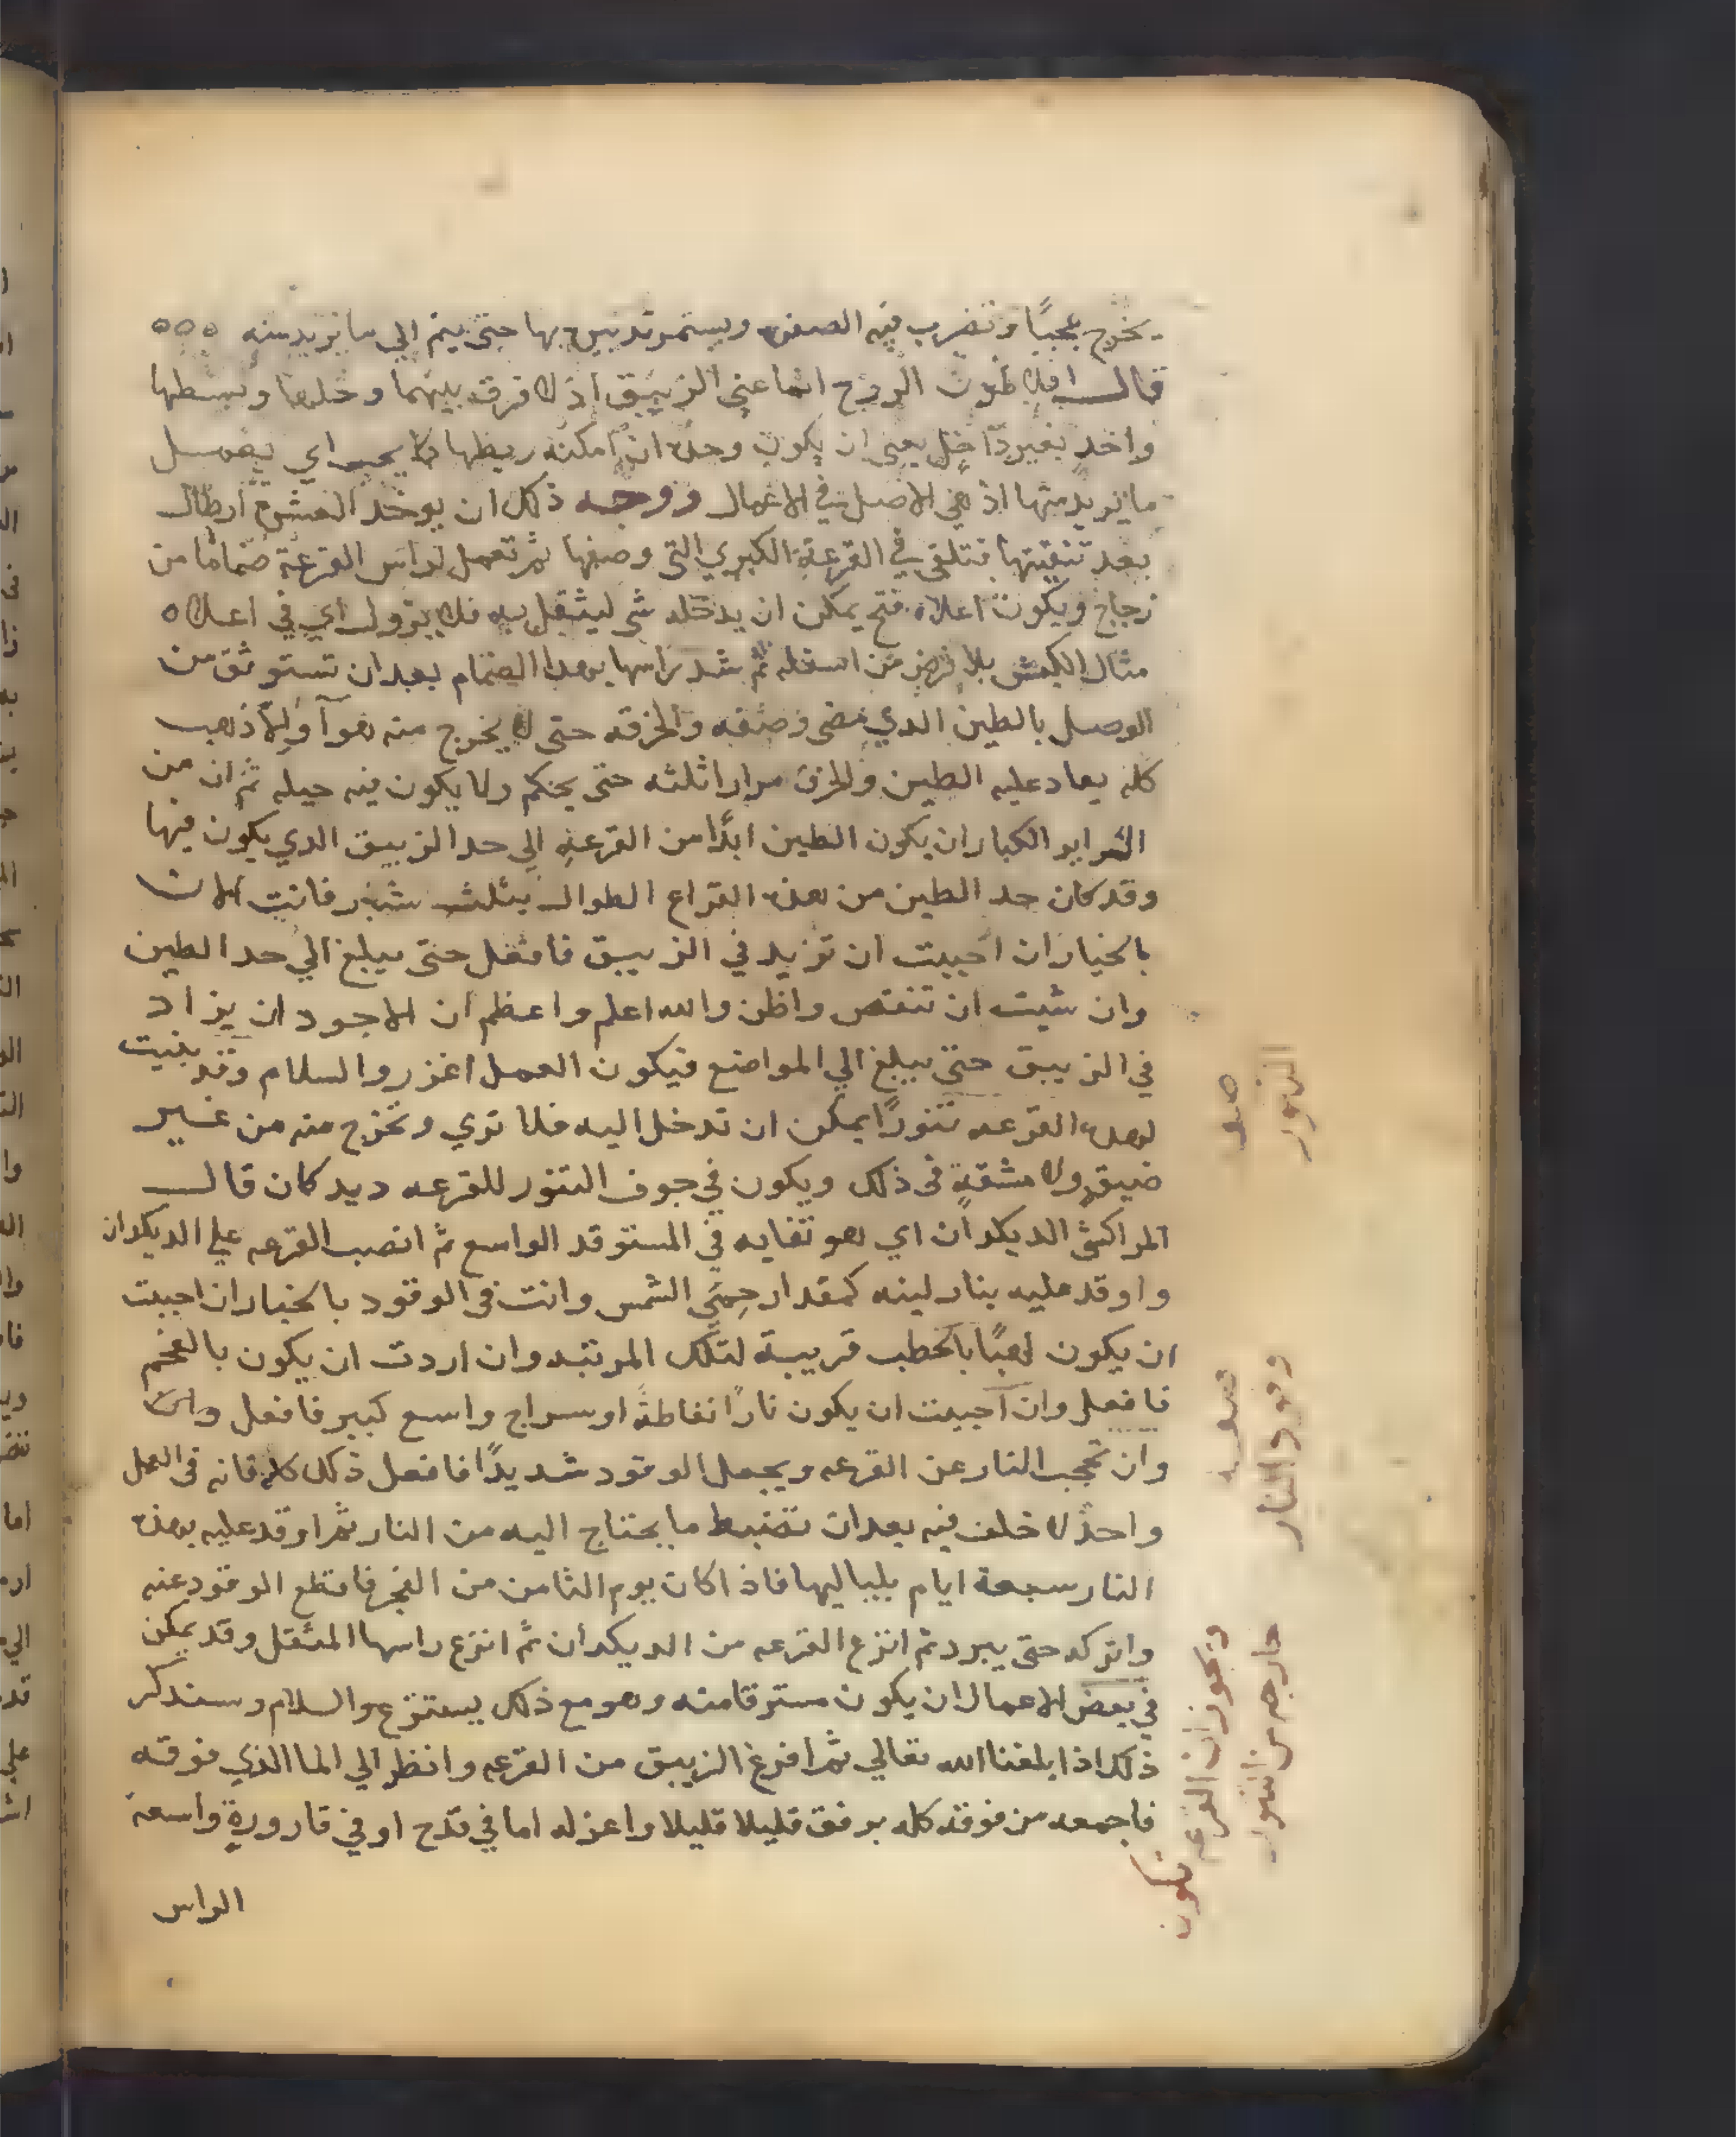 يخرج عجبًا وتضرب فيه الصفره ويستمر تدبيره بها حتى يتم الي ما تريد منه ٥٥٥
قالـــ افلاطون الروح انما عني الزيبق اذ لا فرق بينهما وحلها وبسطها
واخد بغير داخل يعني ان يكون وحده ان امكنه ربطها اي يعمل
ما تريد منها اذ هي الاصل في الاعمال ووجه ذلك ان يوخد العشرة ارطال
بعد تنقيتها فتلقي في القرعة الكبري التي وصفها ثم تعمل لراس القرعة صمامًا من
زجاج ويكون اعلاه فتح يمكن ان يدخله شي ليثقل به فلا يزول اي في اعلاه
مثال الكمش بلا من اسفله ثم شد راسها بهدا الصمام بعد ان تستوثق من
الوصل بالطين الدي مضي وصفه والخرقه حتى لا يخرج منه هوآ وليلا ذهب
كله يعاد عليه الطين والخرق مرارا ثلثه حتى يحكم ولا يكون فيه حيله ثم ان من
الكبار ان يكون الطين ابدًا من القرعه الي حد الزيبق الدي يكون فيها
وقد كان حد الطين من هده القراع الطوال بثلث شبر فانت الان
بالخيار ان احببت ان تزيد في الزيبق فافعل حتى يبلغ الي حد الطين
وان شيت ان تنقص واظن والله اعلم واعظم ان الاجود ان يزاد
في الزيبق حتى يبلغ الي المواضع فيكون العمل اغزر والسلام وقد بنيت
لهده القرعه تنورًا يمكن ان تدخل اليه فلا تري وتخرج منه من غير
ضيق ولا مشقةٍ في ذلك ويكون في جوف التنور للقرعه ديدكان قالـــ
المراكشي الديكدان اي هو نفايه في المستوقد الواسع ثم انصب القرعه علي الديكدان
واوقد عليه بنار لينه كمقدار حِمَي الشمس وانت في الوقود بالخيار ان احببت
ان يكون لهبًا بالحطب قريبة لتلك المرتبه وان اردت ان يكون بالفحم
فافعل وان احببت ان يكون نارًا نفاطةً او سراج واسع كبير فافعل وان
وان تحجب النار عن القرعه ويجعل الوقود شديدًا فافعل ذلك كله فانه في العمل
واحدٌ لا خلف فيه بعد ان تضبط ما يحتاج اليه من النار ثم اوقد عليه بهذه
النار سبعة ايام بلياليها فاذا كان يوم الثامن من الفجر فاقطع الوقود عنه
واتركه حتى يبرد ثم انزع القرعه من الديكدان ثم انزع راسها المثقل وقد يمكن
في بعض الاعمال ان يكون مسترقا منه وهو مع ذلك يستنزع والسلام وسنذكر
ذلك اذا بلغنا الله تعالي ثم افرغ الزيبق من القرعه وانظر الي الما الذي فوقه
فاجمعه من فوقه كله برفق قليلا قليلا واعزله اما في قدح او في قارورةٍ واسعة
الراس
صفه
التنور
صفه
وقود النار
ويجوز ان القرعه تكون
خارجه من التنور